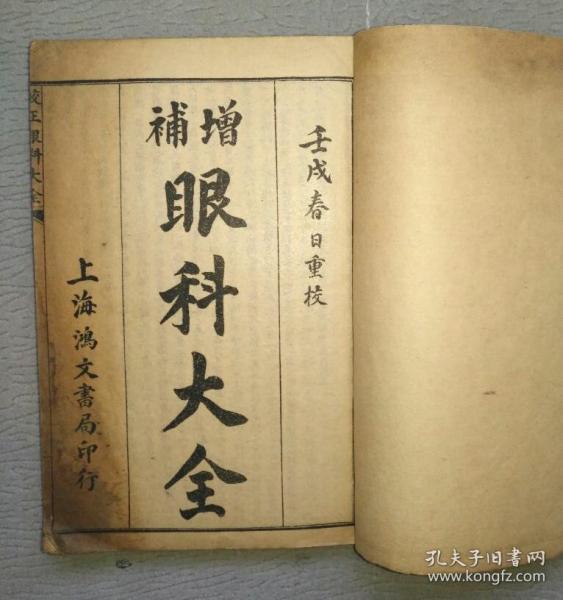 壬戌春日重校
增補
眼科大全
上海鴻文書局印行
校正眼科大全
孔夫子旧书网
www.kongfz.com